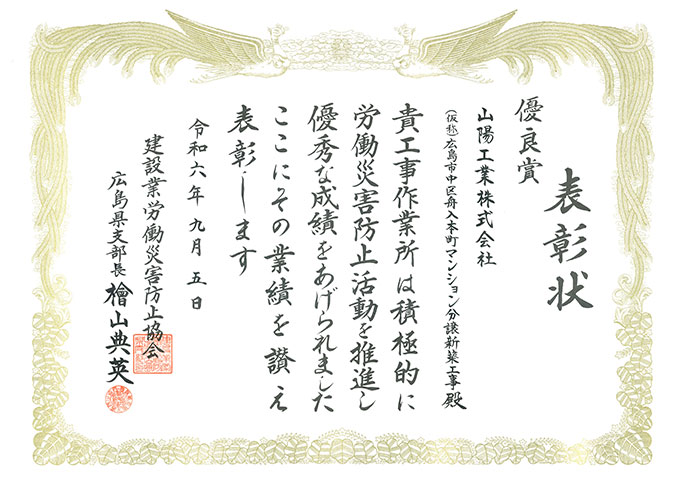 表彰状
優良賞
山陽工業株式会社
(仮称)広島市中区舟入本町マンション分譲新築工事殿
貴工事作業所は積極的に
労働災害防止活動を推進し
優秀な成績をあげられました
ここにその業績を讃え
表彰します
令和六年九月五日
建設業労働災害防止協会
広島県支部長 檜山典英